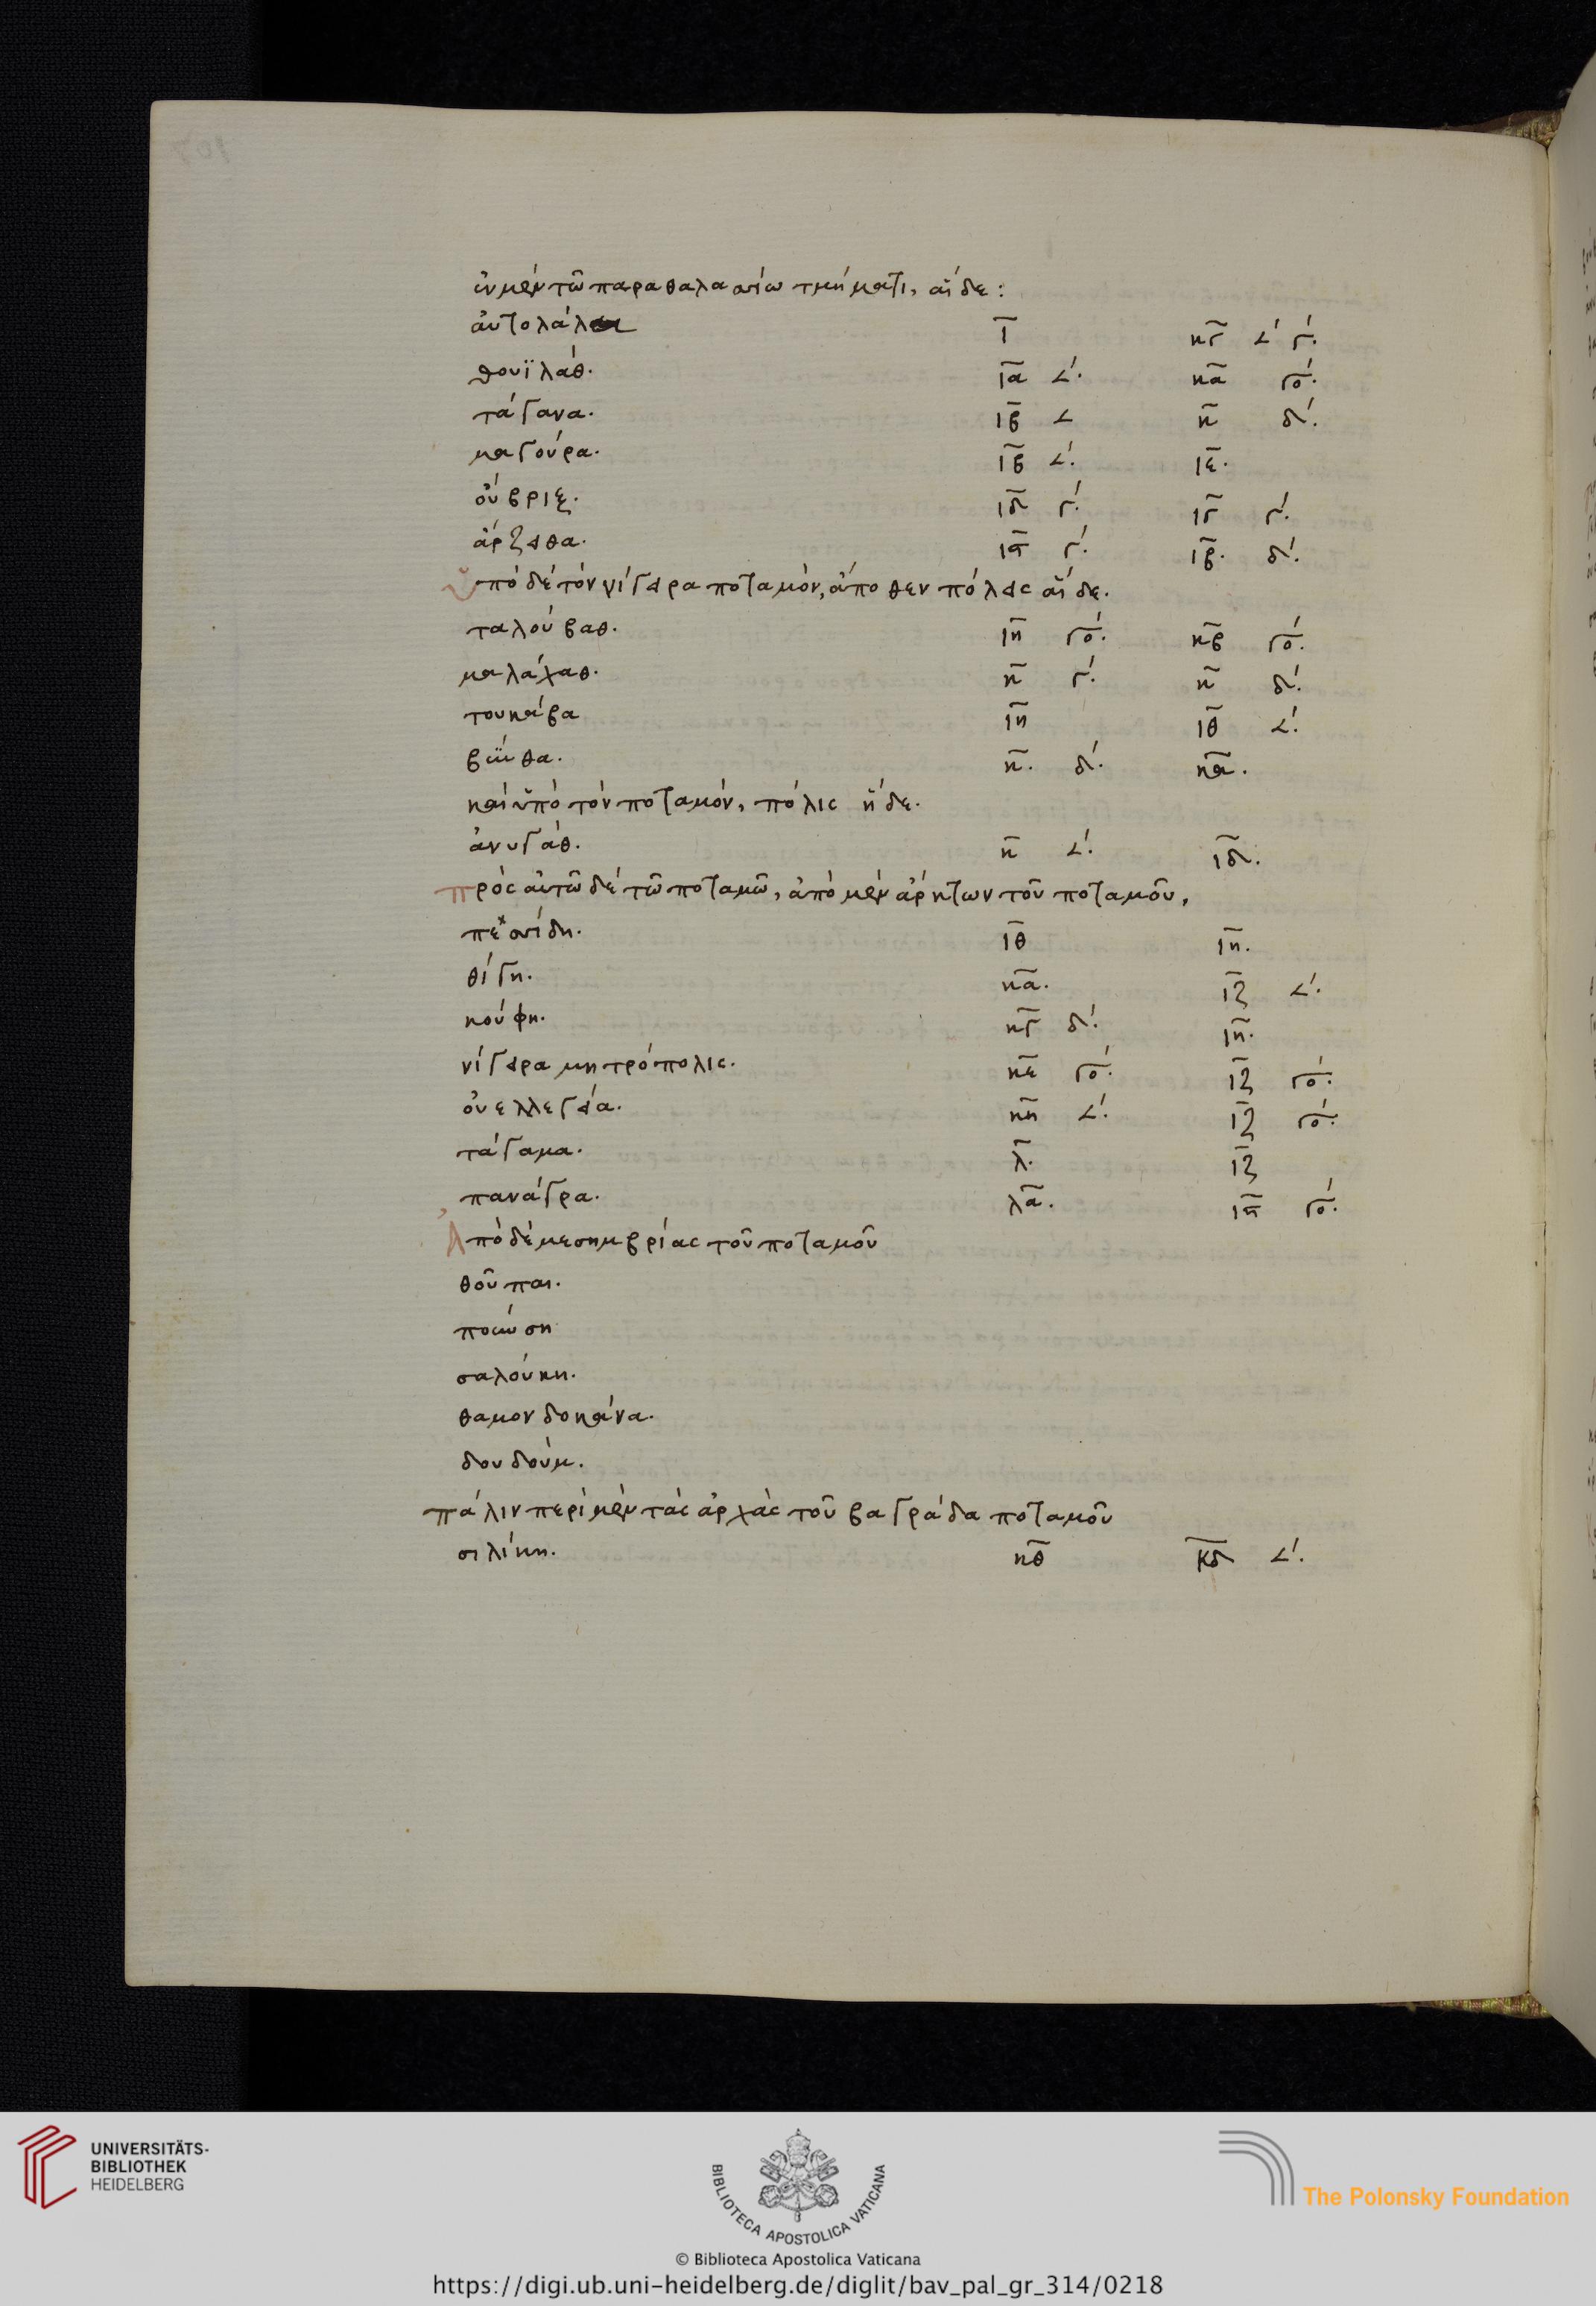 ἐν μὲν τῶ παραθαλασσίω τμήματι, αἵδε:
αὐτολάλαι ι κγ 𐅵 γ.
θουϊλάθ. ια 𐅵. κα γο.
τάγανα. ιβ 𐅵 κ δ.
μαγούρα. ιβ 𐅵. ιε.
οὔβριξ. ιδ γ. ιγ γ.
ἄρζειθα. ις γ. ιβ. δ.
ὑπὸ δὲ τὸν νίγειρα ποταμὸν, ἄποθεν πόλεις αἵδε.
ταλούβαθ. ιη γο. κβ γο.
μαλάχαθ. κ γ. κ δ.
τουκάβα ιη ιθ 𐅵.
βήθα. κ. δ. κα.
καὶ ὑπὸ τὸν ποταμὸν, πόλις ἥδε.
ἀνυγάθ. κ 𐅵. ιδ.
πρὸς αὐτῶ δὲ τῶ ποταμῶ, ἀπὸ μὲν ἄρκτων τοῦ ποταμοῦ,
πεσσίδη. ιθ ιη.
θίγη. κα. ιζ 𐅵.
κούφη. κγ δ. ιη.
νίγειρα μητρόπολις. κε γο. ιζ γο.
οὐελλεγεία. κη 𐅵. ιζ γο.
τάγαμα. λ. ιζ
πανάγρα. λα. ις γο.
Ἀπὸ δὲ μεσημβρίας τοῦ ποταμοῦ
θοῦπαι.
ποώση
σαλούκη.
θαμονδοκάνα.
δουδούμ.
πάλιν περὶ μὲν τὰς ἀρχὰς τοῦ βαγράδα ποταμοῦ
σιλίκη. κθ κδ 𐅵.
UNIVERSITÄTS-
BIBLIOTHEK
HEIDELBERG
BIBLIOTECA APOSTOLICA VATICANA
The Polonsky Foundation
© Biblioteca Apostolica Vaticana
https://digi.ub.uni-heidelberg.de/diglit/bav_pal_gr_314/0218